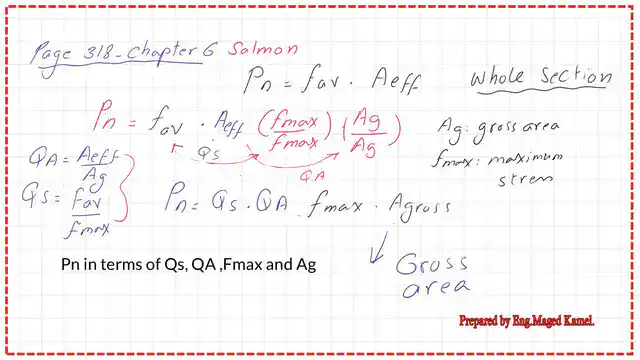 Page 318-chapter 6 Salmon
Pn = fav . Aeff
Whole Section
Pn = fav . Aeff (fmax/fmax) (Ag/Ag)
Qs
QA
Ag: gross area
fmax: maximum
stress
QA = Aeff/Ag
Qs = fav/fmax
Pn = Qs . QA fmax . Agross
Gross
area
Pn in terms of Qs, QA ,Fmax and Ag
Prepared by Eng.Maged Kamel.